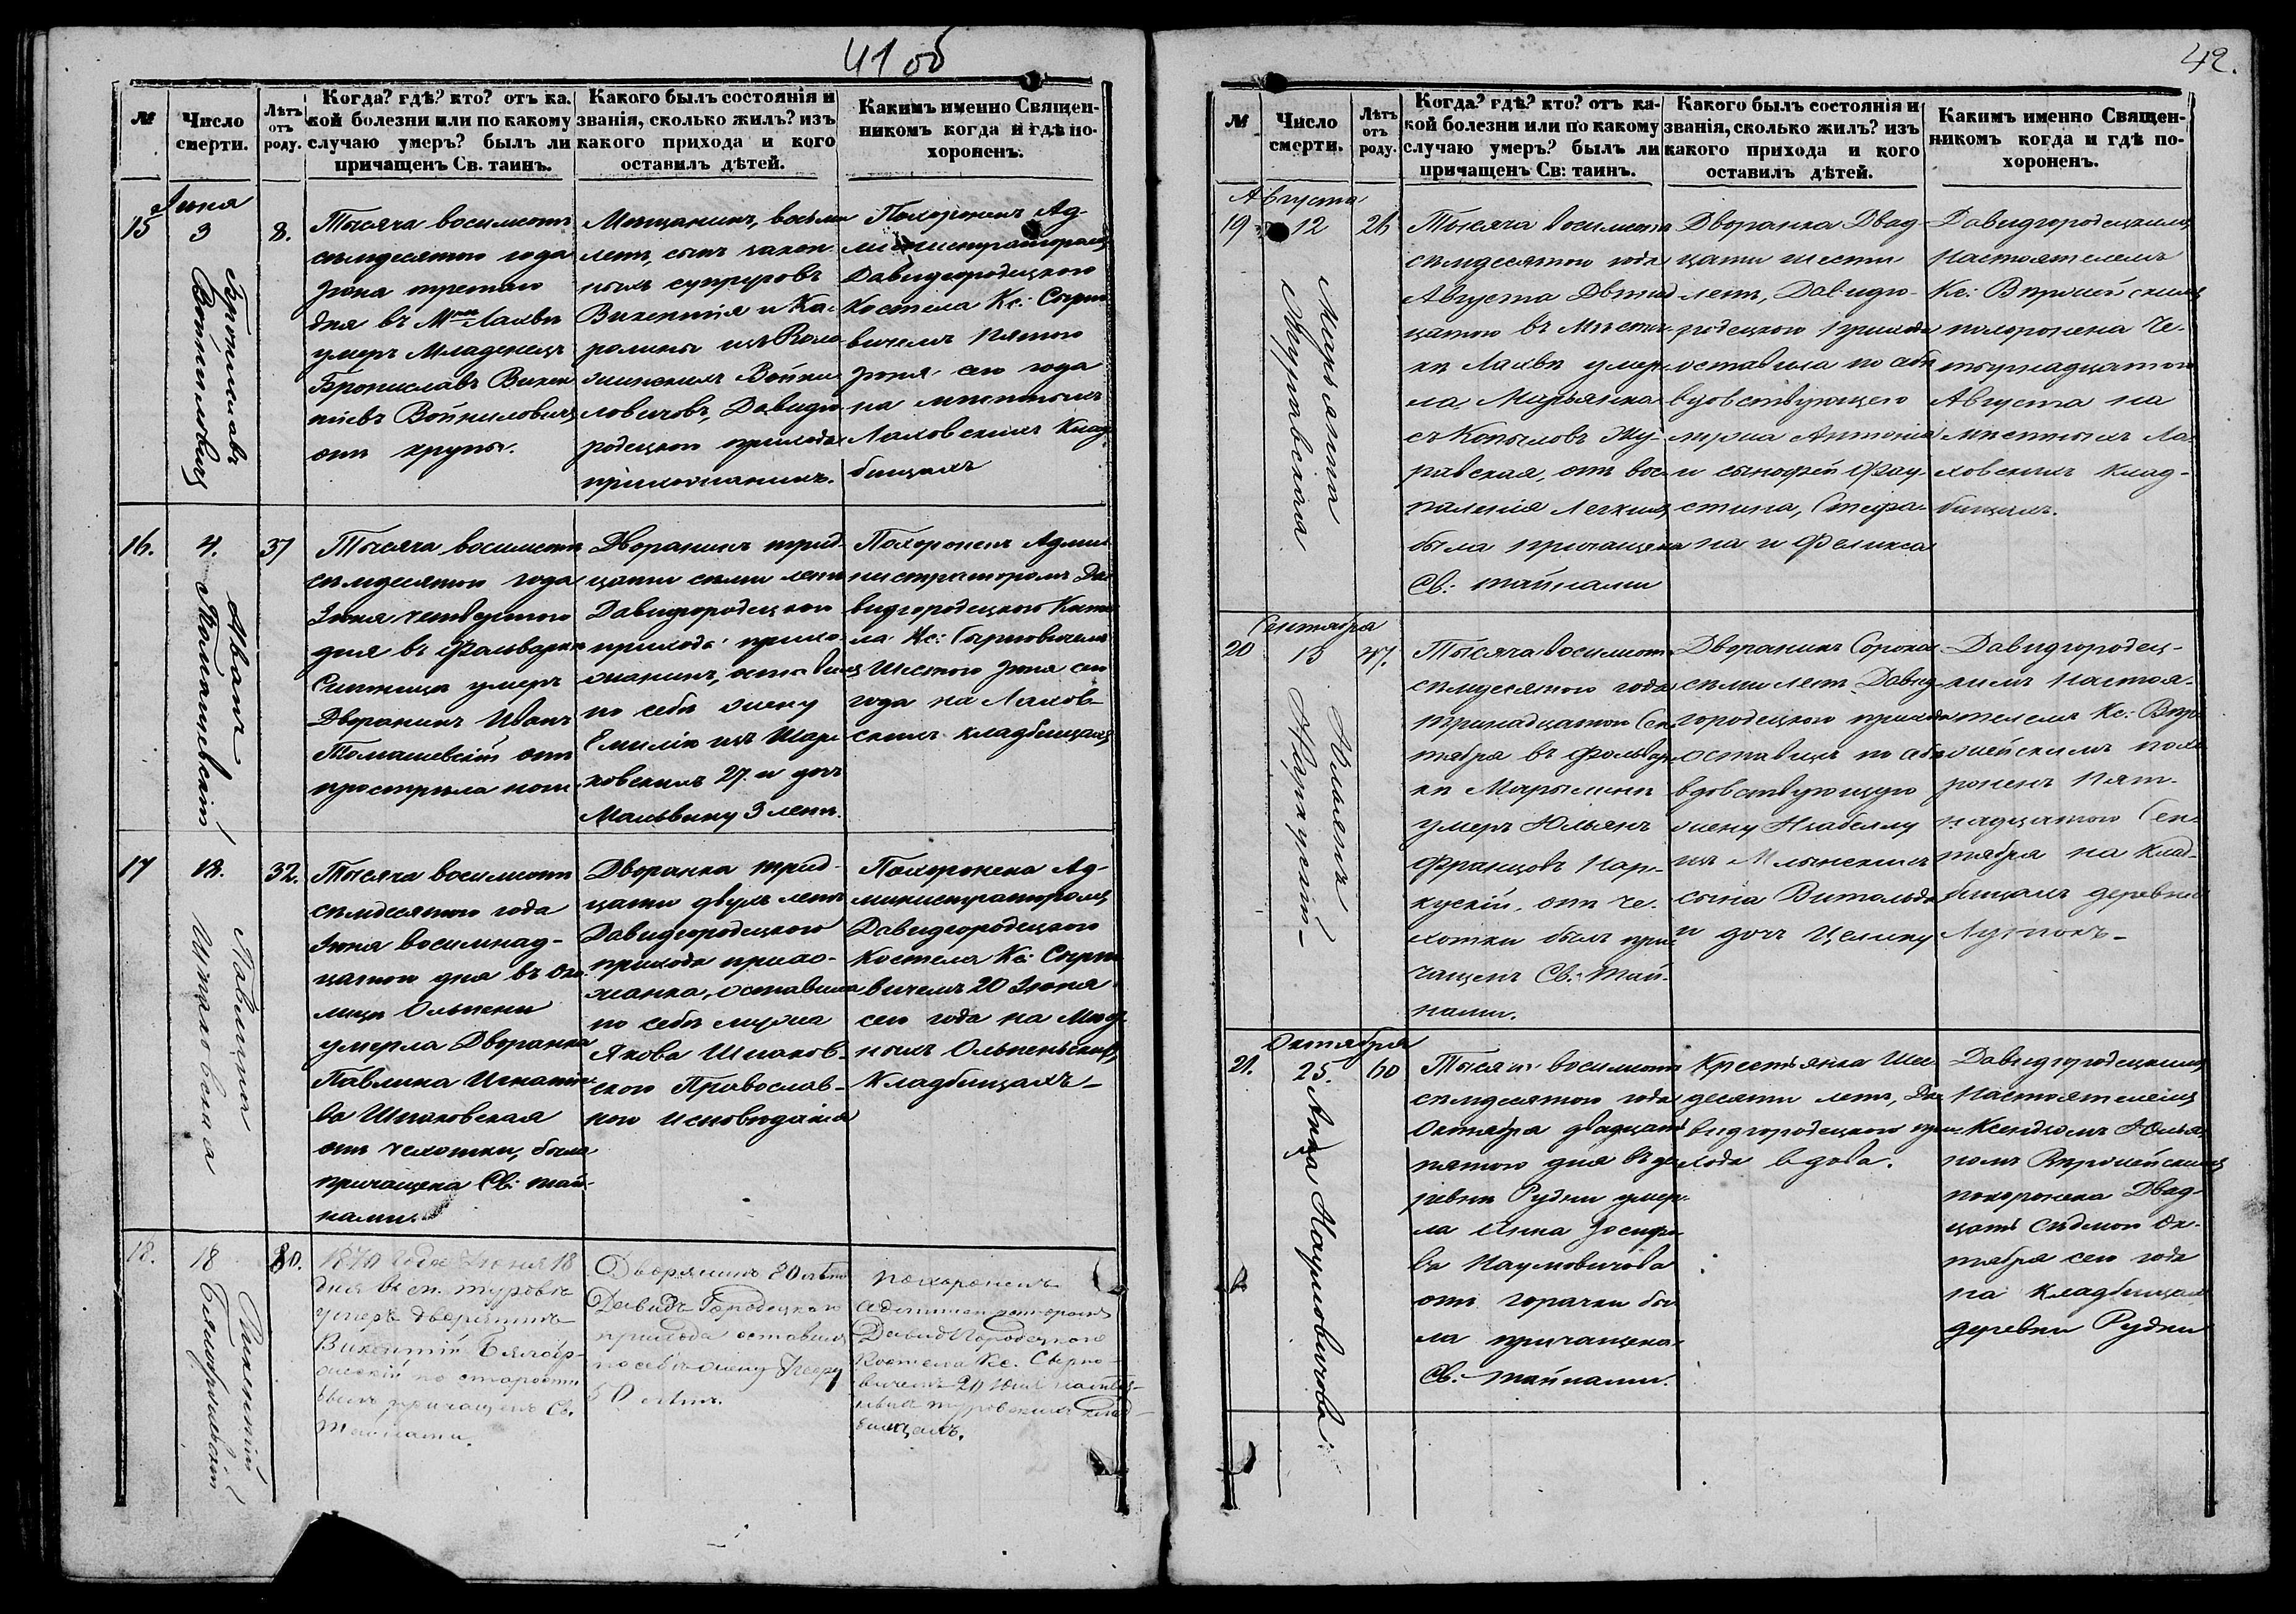 41 об
№
Число
смерти.
Лѣтъ
отъ
роду.
Когда? гдѣ? кто? отъ ка-
кой болезни или по какому
случаю умеръ? былъ ли
причащенъ Св. таин.
Какого былъ состоянія и
званія, сколько жилъ? изъ
какого прихода и кого
оставилъ дѣтей.
Какимъ именно Священ-
никомъ когда и гдѣ по-
хороненъ.
Іюня
15
3
Брониславъ
Войниловичъ
8.
Тысяча восимсотъ
семдесятого года
Іюня третьяго
дня въ Лахвѣ
умеръ Младенецъ
Брониславъ Викен
тіевъ Войниловичъ
отъ крупы.
Мещанинъ, восьми
летъ, сынъ закон
ныхъ супруговъ
Викентія и Ка-
ролины изъ
Войни
ловичовъ, Давидго
родецкого прихода
прихожанинъ.
Похороненъ Ад-
министраторомъ
Давидгородецкого
Костела Кс:
пятого
Іюня сего года
на местныхъ
Лаховскихъ Клад
бищахъ
16.
4.
Иванъ
Томашевскій
37
Тысяча восимсотъ
семдесятого года
Іюня четвертого
дня въ Фольварке
Ситницы умеръ
Дворанинъ Иванъ
Томашевскій отъ
прострела
Дворанинъ трид
цати семи летъ
Давидгородецкого
прихода прихо-
жанинъ, оставилъ
по себе жену
Емилію изъ
27. и дочь
Мальвину 3 летъ.
Похороненъ Адми
нистраторомъ Да
видгородецкого Косте
ла Кс:
Шестого Іюня сего
года на Лахов-
скихъ кладбищахъ
17
18.
Павлина
Шпаковская
32.
Тысяча восимсотъ
семдесятого года
Іюня восимнад-
цатого дня въ Око-
лице Ольпени
умерла Дворанка
Павлина Игнатіе
ва Шпаковская
отъ чехотки, была
причащена Св: тай-
нами.
Дворанка трид-
цати двухъ летъ
Давидгородецкого
прихода прихо-
жанка, оставила
по себе мужа
Якова Шпаков-
ского Православ-
ного исповеданія
Похоронена Ад-
министраторомъ
Давидгородецкого
Костела Кс:
20 Іюня
сего года на
Ольпеньскихъ
Кладбищахъ
18.
18
Викентій
80.
1870 года Іюня 18
дня въ туровъ
умеръ дворянинъ
Викентій
по старости
былъ причащенъ Св.
тайнами.
Дворянинъ 80 лѣтъ
Давидъ Городецкого
прихода оставилъ
по себѣ жену
50 лѣтъ.
похороненъ
администраторомъ
Давидъ Городецкого
Костела Кс.
20 Іюня
туровскихъ клад-
бищахъ.
42.
№
Число
смерти.
Лѣтъ
отъ
роду.
Когда? гдѣ? кто? отъ ка-
кой болезни или по какому
случаю умеръ? былъ ли
причащенъ Св: таинъ.
Какого былъ состоянія и
званія, сколько жилъ? изъ
какого прихода и кого
оставилъ дѣтей.
Какимъ именно Священ-
никомъ когда и гдѣ по-
хороненъ.
Августа
19
12
Марьянна
Журавская
26
Тысяча восимсотъ
семдесятого года
Августа Двенад
цатого въ Местеч-
ке Лахве умер-
ла Марьянна
съ Копыловъ Жу-
равская, отъ вос-
паленія Легкихъ,
была причащена
Св: тайнами
Дворанка Двад-
цати шести
летъ, Давидго-
родецкого прихода
оставила по себе
вдовствующего
мужа Антонія
и сыновей Фау-
стина, Стефа-
на и Феликса
Давидгородецкимъ
Настоятелемъ
Кс:
похоронена Че-
тырнадцатого
Августа на
местныхъ Ла-
ховскихъ Клад-
бищахъ.
Сентября
20
13
Юльянъ
Наркускій
47.
Тысяча восимсотъ
семдесятого года
тринадцатого Сен
тября въ Фольвар
ке Марылине
умеръ Юльянъ
Францовъ Нар-
кускій, отъ че-
хотки былъ при-
чащенъ Св: Тай-
нами.
Дворанинъ Сорока
семи летъ Давид
городецкого прихода
оставилъ по себе
вдовствующую
жену Изабеллу
изъ
сына Витольда
и дочь Целину
Давидгородец-
кимъ Настоя-
телемъ Кс:
похо
роненъ Пят-
надцатого Сен-
тября на Клад-
бищахъ деревни
Октября
21.
25.
Анна Наумовичова
60
Тысяча восимсотъ
семдесятого года
Октября двадцать
пятого дня въ де
ревне Рудни умер-
ла Анна Іосифо
ва Наумовичова
отъ горачки бы-
ла причащена
Св: тайнами.
Крестьянка Шес
десяти летъ, Да
видгородецкого при-
хода вдова.
Давидгородецкимъ
Настоятелемъ
Ксендзомъ Юлья
номъ
похоронена Двад-
цать седмого Ок-
тября сего года
на Кладбищахъ
деревни Рудни